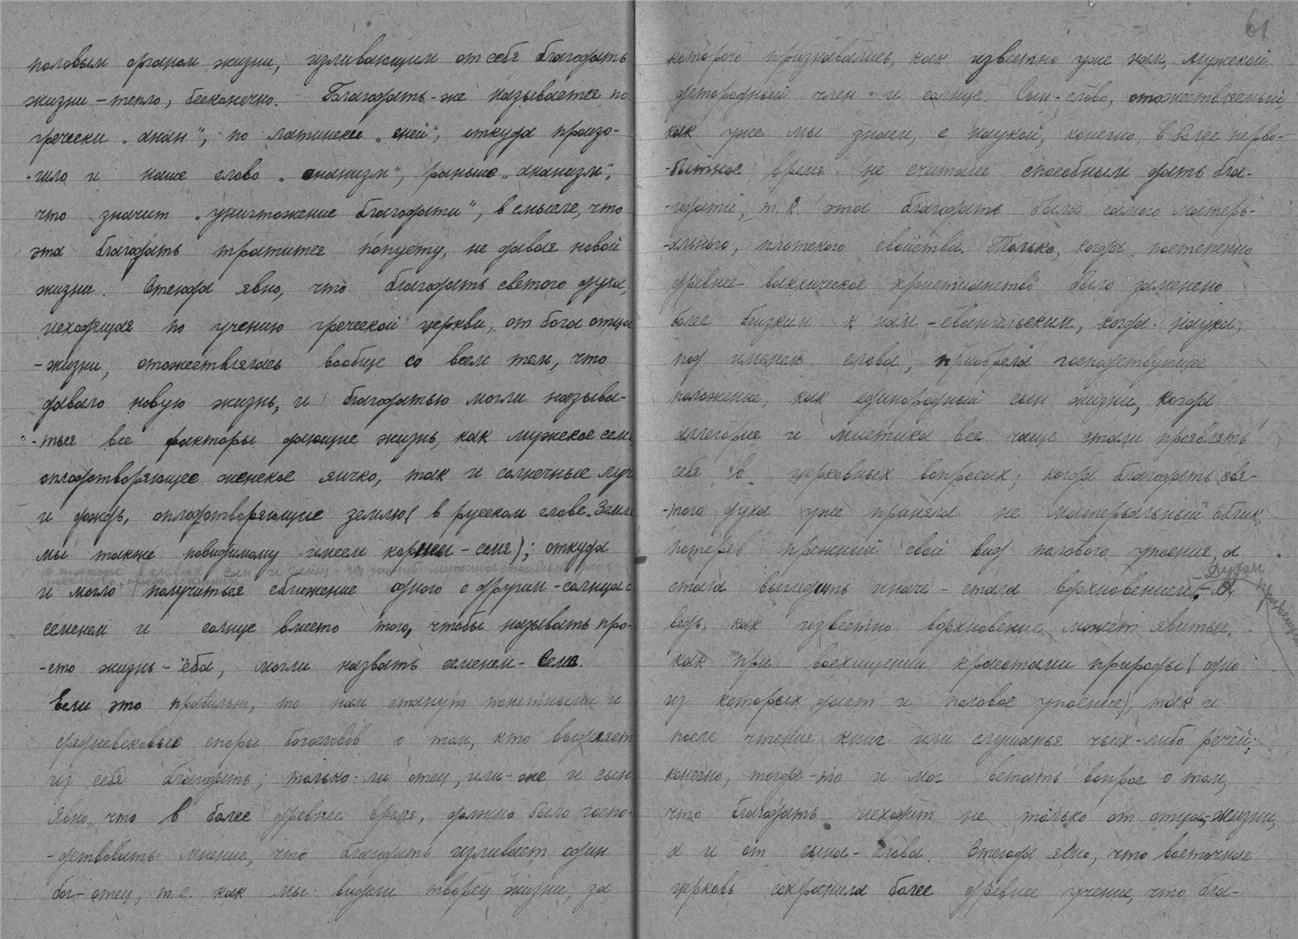 половым органом жизни, изливающим от себя благодать
жизни - тепло, бесконечно. Благодать-же называется по
гречески „анан“, по латински „еней“, откуда произо-
-шло и наше слово „онанизм“, раньше „ананизм“,
что значит „уничтожение благодати“, в смысле, что
эта благодать тратится попусту, не давая новой
жизни. Отсюда явно, что благодать святого духа,
исходящая по учению греческой церкви, от бога отца
-жизни, отожествлялась вообще со всем тем, что
давало новую жизнь, и благодатью могли называ-
-ться все факторы дающие жизнь, как мужское сем
оплодотворяющее женское яичко, так и солнечные луч
и дождь, оплодотворяющие землю (в русском слове „Земля
мы также повидимому имеем корнем - семя); откуда
и могло получиться сближение одного с другим - солнца с
семенем и солнце вместо того, чтобы называть про-
-сто жизнь - ёба, могли назвать семенем - Сем.
Если это правильно, то нам станут понятными и
средневековые споры богословов о том, кто выделяет
из себя благодать; только-ли отец, или-же и сын
Явно, что в более древнее время, должно было госпо-
-дствовать мнение, что благодать изливает один
бог-отец, т.е. как мы видели творец жизни, за
61
которого признавались, как известно уже нам, мужской
детородный член и солнце. Сын-слово, отожествляемый,
как уже мы знаем, с наукой, конечно, в более перво-
-бытное время не считался способным дать бла-
-годати, т.к. эта благодать была самого матерь-
-яльного, плотского свойства. Только, когда постепенно
древне-вакхическое христианство было заменено
более близким к нам - евангельским, когда наука,
под именем слова, приобрела господствующее
положение, как единородный сын жизни, когда
аллегория и мистика все чаще стали проявлять
себя в церковных вопросах; когда благодать свя-
-того духа уже приняла не „материальный“ облик,
потеряв прежний свой вид полового упоения, а
стала выглядить иначе - стала вдохновением,-
Духом
ведь, как известно вдохновение может явиться,
как при восхищении красотами природы (одно
из которых дает и половое упоение), так и
после чтения книг или слушанья чьих-либо речей;
конечно, тогда-то и мог встать вопрос о том,
что благодать исходит не только от отца-жизни,
а и от сына-слова. Отсюда явно, что восточная
церковь сохранила более древнее учение, что бла-